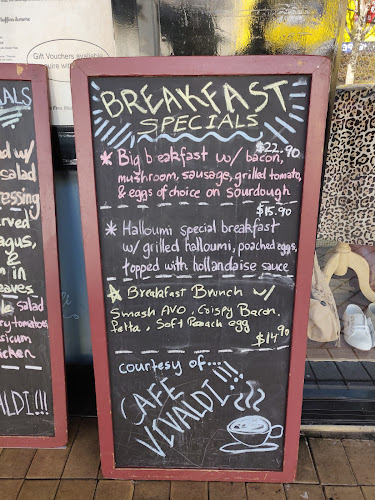 Muffins & more
Gift Vouchers available
BREAKFAST
SPECIALS
$22.90
* Big breakfast w/ bacon,
mushroom, sausage, grilled tomato,
& eggs of choice on sourdough
$15.90
* Halloumi special breakfast
w/ grilled halloumi, poached eggs,
topped with hollandaise sauce
Breakfast Brunch w/
Smash AVO, Crispy Bacon,
fetta, Soft Poach egg
$14.90
courtesy of...
CAFE
VIVALDI!!!
ALS
w/
salad
essing
rved
agus,
&
in
eaves
salad
ry tomatoes
sicum
icken
ALDI!!!